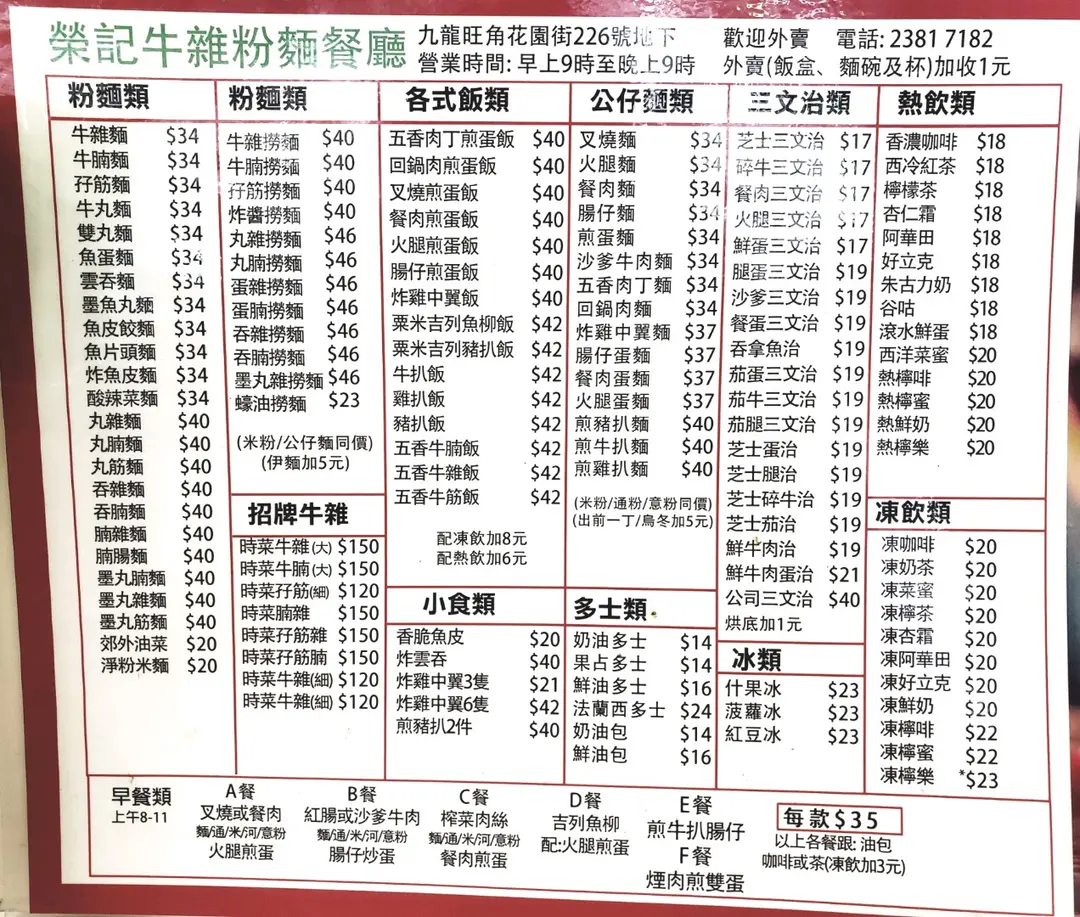 榮記牛雜粉麵餐廳
九龍旺角花園街226號地下
營業時間: 早上9時至晚上9時
歡迎外賣 電話: 2381 7182
外賣(飯盒、麵碗及杯)加收1元
粉麵類
牛雜麵 $34
牛腩麵 $34
孖筋麵 $34
牛丸麵 $34
雙丸麵 $34
魚蛋麵 $34
雲吞麵 $34
墨魚丸麵 $34
魚皮餃麵 $34
魚片頭麵 $34
炸魚皮麵 $34
酸辣菜麵 $34
丸雜麵 $40
丸腩麵 $40
丸筋麵 $40
吞雜麵 $40
吞腩麵 $40
腩雜麵 $40
腩腸麵 $40
墨丸腩麵 $40
墨丸雜麵 $40
墨丸筋麵 $40
郊外油菜 $20
淨粉米麵 $20
粉麵類
牛雜撈麵 $40
牛腩撈麵 $40
孖筋撈麵 $40
炸醬撈麵 $40
丸雜撈麵 $46
丸腩撈麵 $46
蛋雜撈麵 $46
蛋腩撈麵 $46
吞雜撈麵 $46
吞腩撈麵 $46
墨丸雜撈麵 $46
蠔油撈麵 $23
(米粉/公仔麵同價)
(伊麵加5元)
招牌牛雜
時菜牛雜(大) $150
時菜牛腩(大) $150
時菜孖筋(細) $120
時菜腩雜 $150
時菜孖筋雜 $150
時菜孖筋腩 $150
時菜牛雜(細) $120
時菜牛雜(細) $120
各式飯類
五香肉丁煎蛋飯 $40
回鍋肉煎蛋飯 $40
叉燒煎蛋飯 $40
餐肉煎蛋飯 $40
火腿煎蛋飯 $40
腸仔煎蛋飯 $40
炸雞中翼飯 $40
粟米吉列魚柳飯 $42
粟米吉列豬扒飯 $42
牛扒飯 $42
雞扒飯 $42
豬扒飯 $42
五香牛腩飯 $42
五香牛雜飯 $42
五香牛筋飯 $42
配凍飲加8元
配熱飲加6元
小食類
香脆魚皮 $20
炸雲吞 $40
炸雞中翼3隻 $21
炸雞中翼6隻 $42
煎豬扒2件 $40
公仔麵類
叉燒麵 $34
火腿麵 $34
餐肉麵 $34
腸仔麵 $34
煎蛋麵 $34
沙爹牛肉麵 $34
五香肉丁麵 $34
回鍋肉麵 $34
炸雞中翼麵 $37
腸仔蛋麵 $37
餐肉蛋麵 $37
火腿蛋麵 $37
煎豬扒麵 $40
煎牛扒麵 $40
煎雞扒麵 $40
(米粉/通粉/意粉同價)
(出前一丁/烏冬加5元)
多士類
奶油多士 $14
果占多士 $14
鮮油多士 $16
法蘭西多士 $24
奶油包 $14
鮮油包 $16
三文治類
芝士三文治 $17
碎牛三文治 $17
餐肉三文治 $17
火腿三文治 $17
鮮蛋三文治 $17
腿蛋三文治 $19
沙爹三文治 $19
餐蛋三文治 $19
吞拿魚治 $19
茄蛋三文治 $19
茄牛三文治 $19
茄腿三文治 $19
芝士蛋治 $19
芝士腿治 $19
芝士碎牛治 $19
芝士茄治 $19
鮮牛肉治 $19
鮮牛肉蛋治 $21
公司三文治 $40
烘底加1元
冰類
什果冰 $23
菠蘿冰 $23
紅豆冰 $23
熱飲類
香濃咖啡 $18
西冷紅茶 $18
檸檬茶 $18
杏仁霜 $18
阿華田 $18
好立克 $18
朱古力奶 $18
谷咕 $18
滾水鮮蛋 $18
西洋菜蜜 $20
熱檸啡 $20
熱檸蜜 $20
熱鮮奶 $20
熱檸樂 $20
凍飲類
凍咖啡 $20
凍奶茶 $20
凍菜蜜 $20
凍檸茶 $20
凍杏霜 $20
凍阿華田 $20
凍好立克 $20
凍鮮奶 $20
凍檸啡 $22
凍檸蜜 $22
凍檸樂 *$23
早餐類
上午8-11
A餐
叉燒或餐肉
麵/通/米/河/意粉
火腿煎蛋
B餐
紅腸或沙爹牛肉
麵/通/米/河/意粉
腸仔炒蛋
C餐
榨菜肉絲
麵/通/米/河/意粉
餐肉煎蛋
D餐
吉列魚柳
配:火腿煎蛋
E餐
煎牛扒腸仔
F餐
煙肉煎雙蛋
每款$35
以上各餐跟: 油包
咖啡或茶(凍飲加3元)